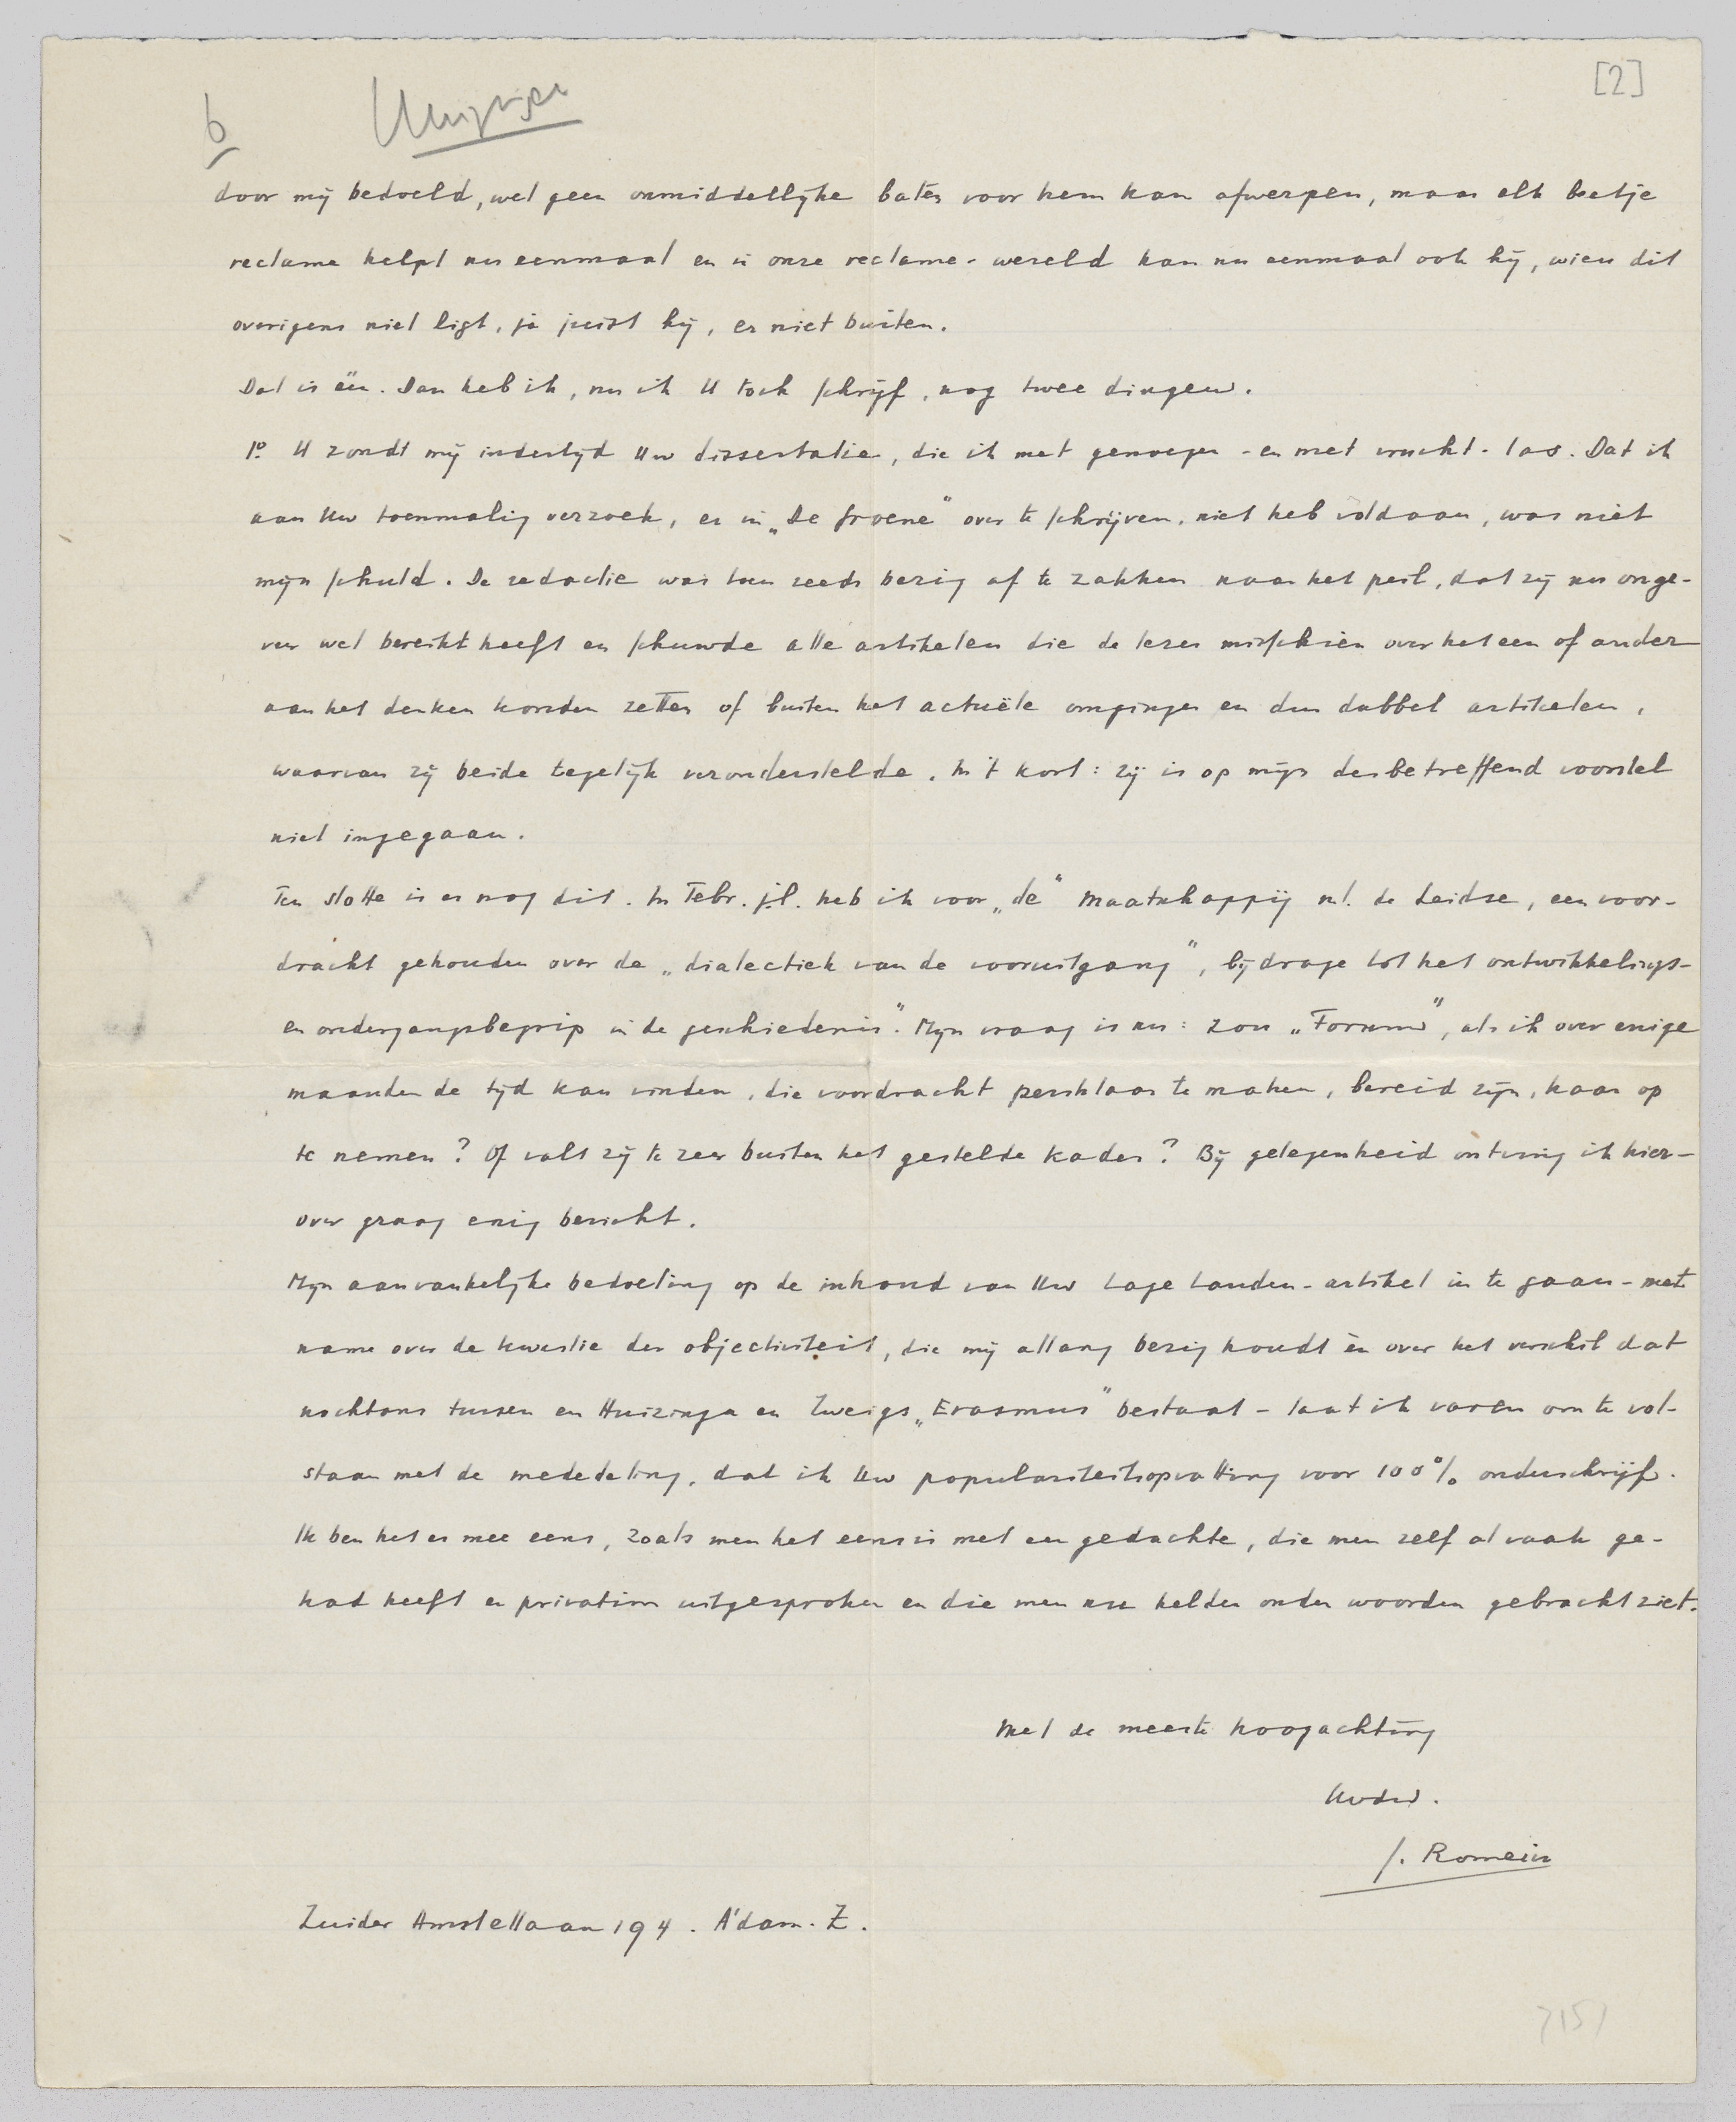 [2]
6
door mij bedoeld, wel geen onmiddellijke baten voor hem kan afwerpen, maar elk beetje
reclame helpt nu eenmaal en in onze reclame-wereld kan nu eenmaal ook hij, wien dit
overigens niet ligt, ja juist hij, er niet buiten.
Dat is één. Dan heb ik, nu ik U toch schrijf, nog twee dingen.
1o. U zondt mij indertijd Uw dissertatie, die ik met genoegen - en met vrucht - las. Dat ik
aan Uw toenmalig verzoek, er in „De Groene" over te schrijven, niet heb voldaan, was niet
mijn schuld. De redactie was toen reeds bezig af te zakken naar het peil, dat zij nu onge-
veer wel bereikt heeft en schuwde alle artikelen die de lezer misschien over het een of ander
aan het denken konden zetten of buiten het actuële omgingen en dus dubbel artikelen,
waarvan zij beide tegelijk veronderstelde. In 't kort: zij is op mijn desbetreffend voorstel
niet ingegaan.
Ten slotte is er nog dit. In Febr. j.l. heb ik voor „de" Maatschappij nl. de Leidse, een voor-
dracht gehouden over de „dialectiek van de vooruitgang", bijdrage tot het ontwikkelings-
en ondergangsbegrip in de geschiedenis". Mijn vraag is nu: zou „Forum", als ik over enige
maanden de tijd kan vinden, die voordracht persklaar te maken, bereid zijn, haar op
te nemen? Of valt zij te zeer buiten het gestelde kader? Bij gelegenheid ontving ik hier-
over graag enig bericht.
Mijn aanvankelijke bedoeling op de inhoud van Uw Lage Landen-artikel in te gaan - met
name over de kwestie der objectiviteit, die mij allang bezig houdt èn over het verschil dat
nochtans tussen en Huizinga en Zweigs „Erasmus" bestaat - laat ik varen om te vol-
staan met de mededeling, dat ik Uw populariteitsopvatting voor 100% onderschrijf.
Ik ben het er mee eens, zoals men het eens is met een gedachte, die men zelf al vaak ge-
had heeft en privatim uitgesproken en die men nu helder onder woorden gebracht ziet.
Met de meeste hoogachting
Uwdw.
J. Romein
Zuider Amstellaan 194. A'dam. Z.